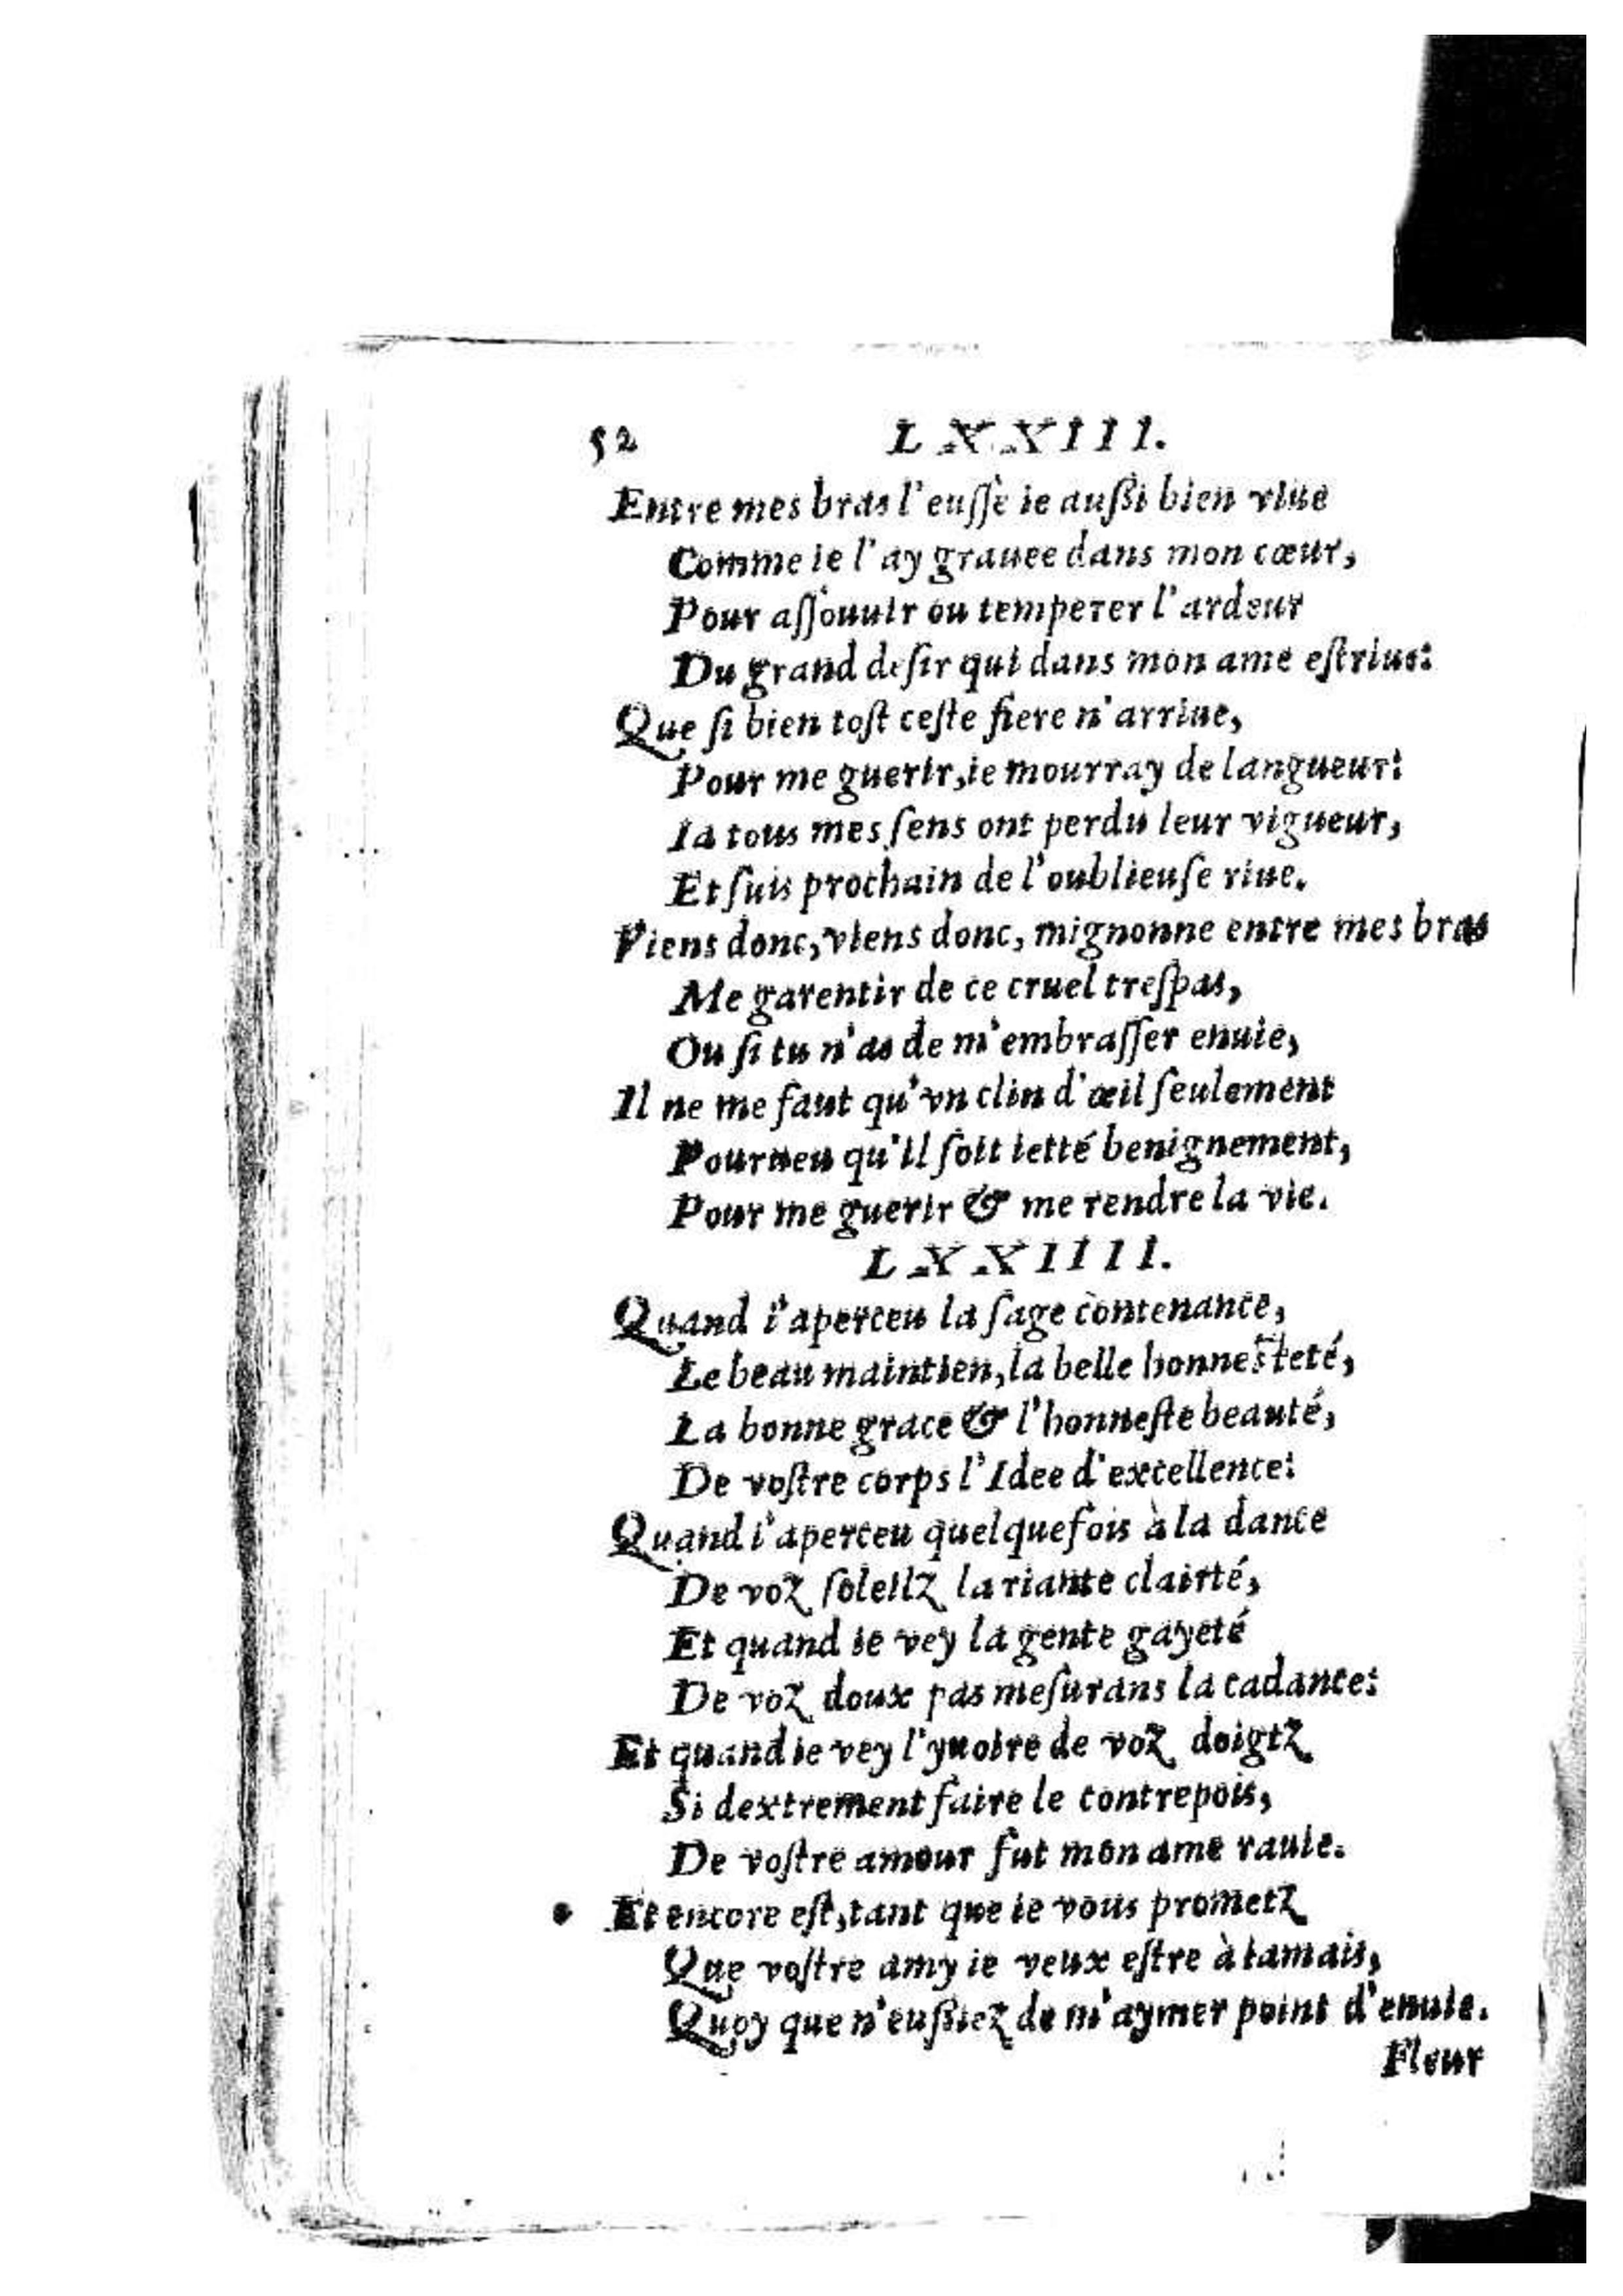 52 LXXIII.
Entre mes bras l'euſſè ie außi bien viue
Comme ie l'ay grauee dans mon cœur,
Pour aſſouuir ou temperer l'ardeur
Du grand deſir qui dans mon ame eſtriue:
Que ſi bien toſt ceſte fiere n'arriue,
Pour me guerir, ie mourray de langueur:
Ia tous mes ſens ont perdu leur vigueur,
Et ſuis prochain de l'oublieuſe riue.
Viens donc, viens donc, mignonne entre mes bras
Me garentir de ce cruel treſpas,
Ou ſi tu n'as de m'embraſſer enuie,
Il ne me faut qu'vn clin d'œil ſeulement
Pourueu qu'il ſoit ietté benignement,
Pour me guerir & me rendre la vie.
LXXIIII.
Quand i'aperceu la ſage contenance,
Le beau maintien, la belle honneſteté,
La bonne grace & l'honneſte beauté,
De voſtre corps l'Idee d'excellence:
Quand i'aperceu quelquefois à la dance
De voz ſoleilz la riante clairté,
Et quand ie vey la gente gayeté
De voz doux pas meſurans la cadance:
Et quand ie vey l'yuoire de voz doigtz
Si dextrement faire le contrepois,
De voſtre amour fut mon ame rauie.
Et encore eſt, tant que ie vous prometz
Que voſtre amy ie veux eſtre à iamais,
Quoy que n'eußiez de m'aymer point d'enuie.
Fleur